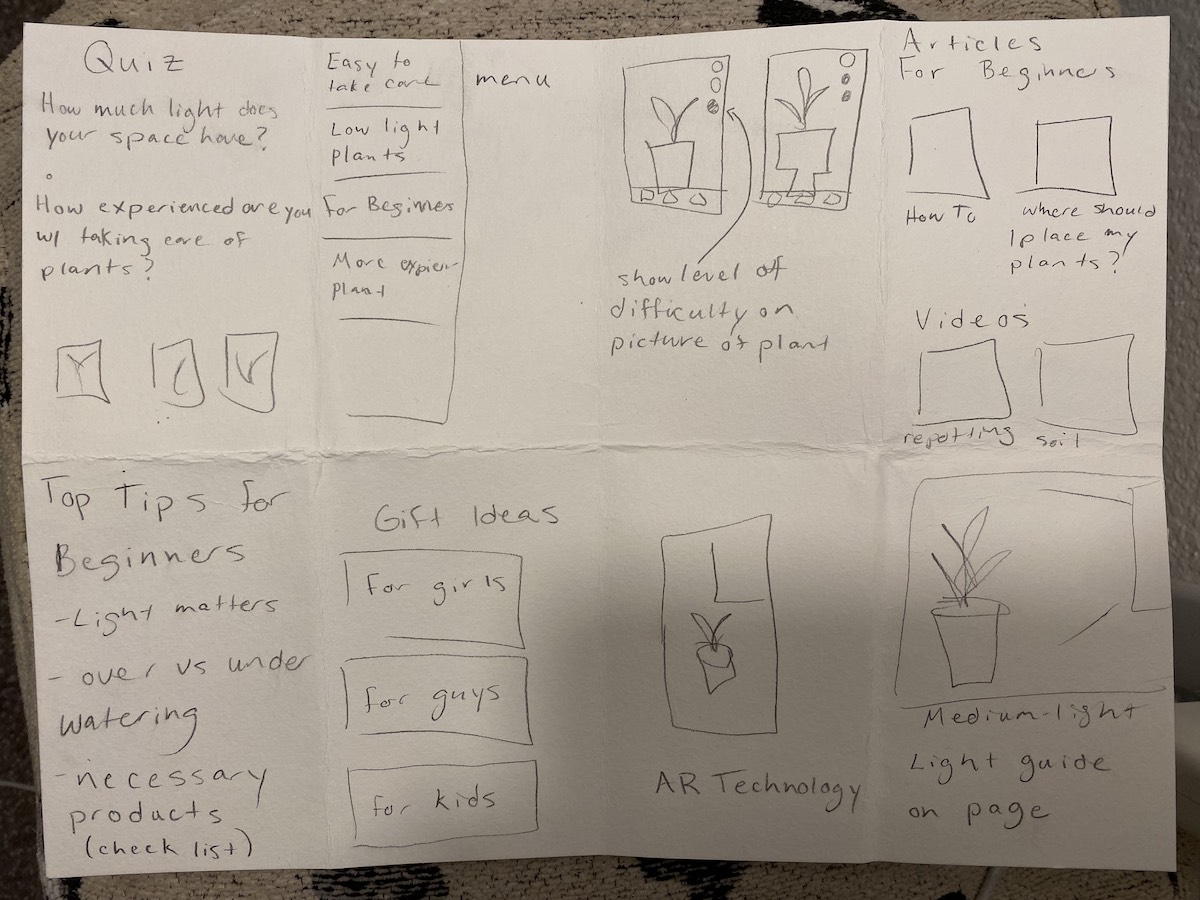 Quiz
How much light does
your space have?
How experienced are you
w/ taking care of
plants?
Easy to
take care
Low light
plants
For Beginner
More expier
plant
menu
show level of
difficulty on
picture of plant
Articles
For Beginners
How To
where should
I place my
plants?
Videos
repotting
soil
Top Tips for
Beginners
-Light matters
- over vs under
watering
-necessary
products
(check list)
Gift Ideas
for girls
for guys
for kids
AR Technology
Medium-light
Light guide
on page